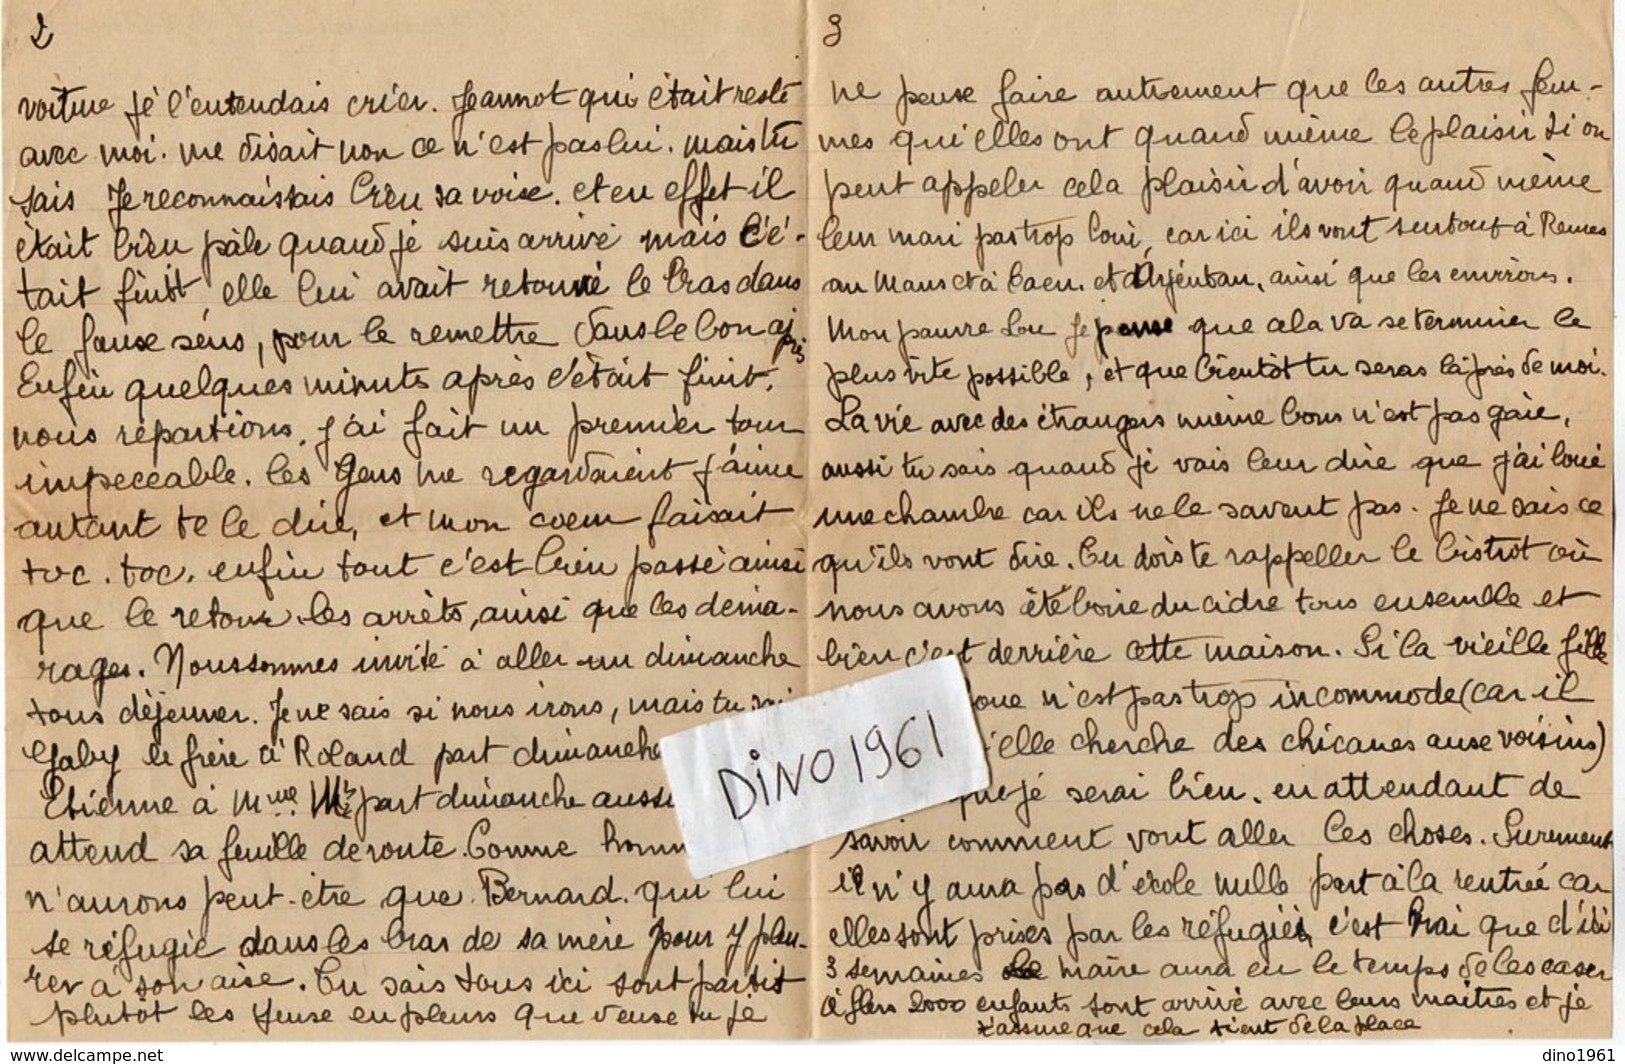 2
voiture je l'entendais crier. Jeannot qui était resté
avec moi. me disait non ce n'est pas lui. mais tu
sais Je reconnaissais bien sa voixe. et en effet il
était bien pâle quand je suis arrivé mais c'é-
tait finit, elle lui avait retourné le bras dans
le fauxe sens, pour le remettre dans le bon après
Enfin quelques minuts après c'était finit.
nous repartions. J'ai fait un premier tour
impeccable. les gens me regardaient j'aime
autant te le dire, et mon coeur faisait
toc. toc. enfin tout c'est bien passé ainsi
que le retour. les arrêts, ainsi que les déma-
rages. Nous sommes invité à aller un dimanche
tous déjeuner. Je ne sais si nous irons, mais tu
Gaby le frère à Roland part dimanche
Etienne à Mme part dimanche aussi
attend sa feuille de route. Comme
n'aurons peut-être que Bernard. qui lui
se réfugie dans les bras de sa mère pour y pleu-
rer à son aise. Tu sais tous ici sont partit
plutôt les yeuxe en pleurs que veuxe tu je
3
ne peuxe faire autrement que les autres fem-
mes qu'elles ont quand même le plaisir si on
peut appeler cela plaisir d'avoir quand même
leur mari pas trop loin, car ici ils vont surtout à Rennes
au Mans et à Caen. et d'Argentan, ainsi que les environs.
Mon pauvre Lou Je pense que cela va se terminer le
plus vite possible, et que bientôt tu seras là près de moi.
La vie avec des étrangers même bons n'est pas gaie,
aussi tu sais quand je vais leur dire que j'ai loué
une chambre car ils ne le savent pas. Je ne sais ce
qu'ils vont dire. Tu dois te rappeller le bistrot où
nous avons été boire du cidre tous ensemble et
bien c'est derrière cette maison. Si la vieille fille
n'est pas trop incommode (car il
elle cherche des chicanes auxe voisins)
que je serai bien. en attendant de
savoir comment vont aller les choses. Surement
il n'y aura pas d'école nulle part à la rentrée car
elles sont prises par les réfugiés, c'est vrai que d'ici
3 semaines le maire aura eu le temps de les caser
à flers 2000 enfants sont arrivé avec leurs maîtres et je
t'assure que cela tient de la place
DINO 1961
delcampe.net
dino1961